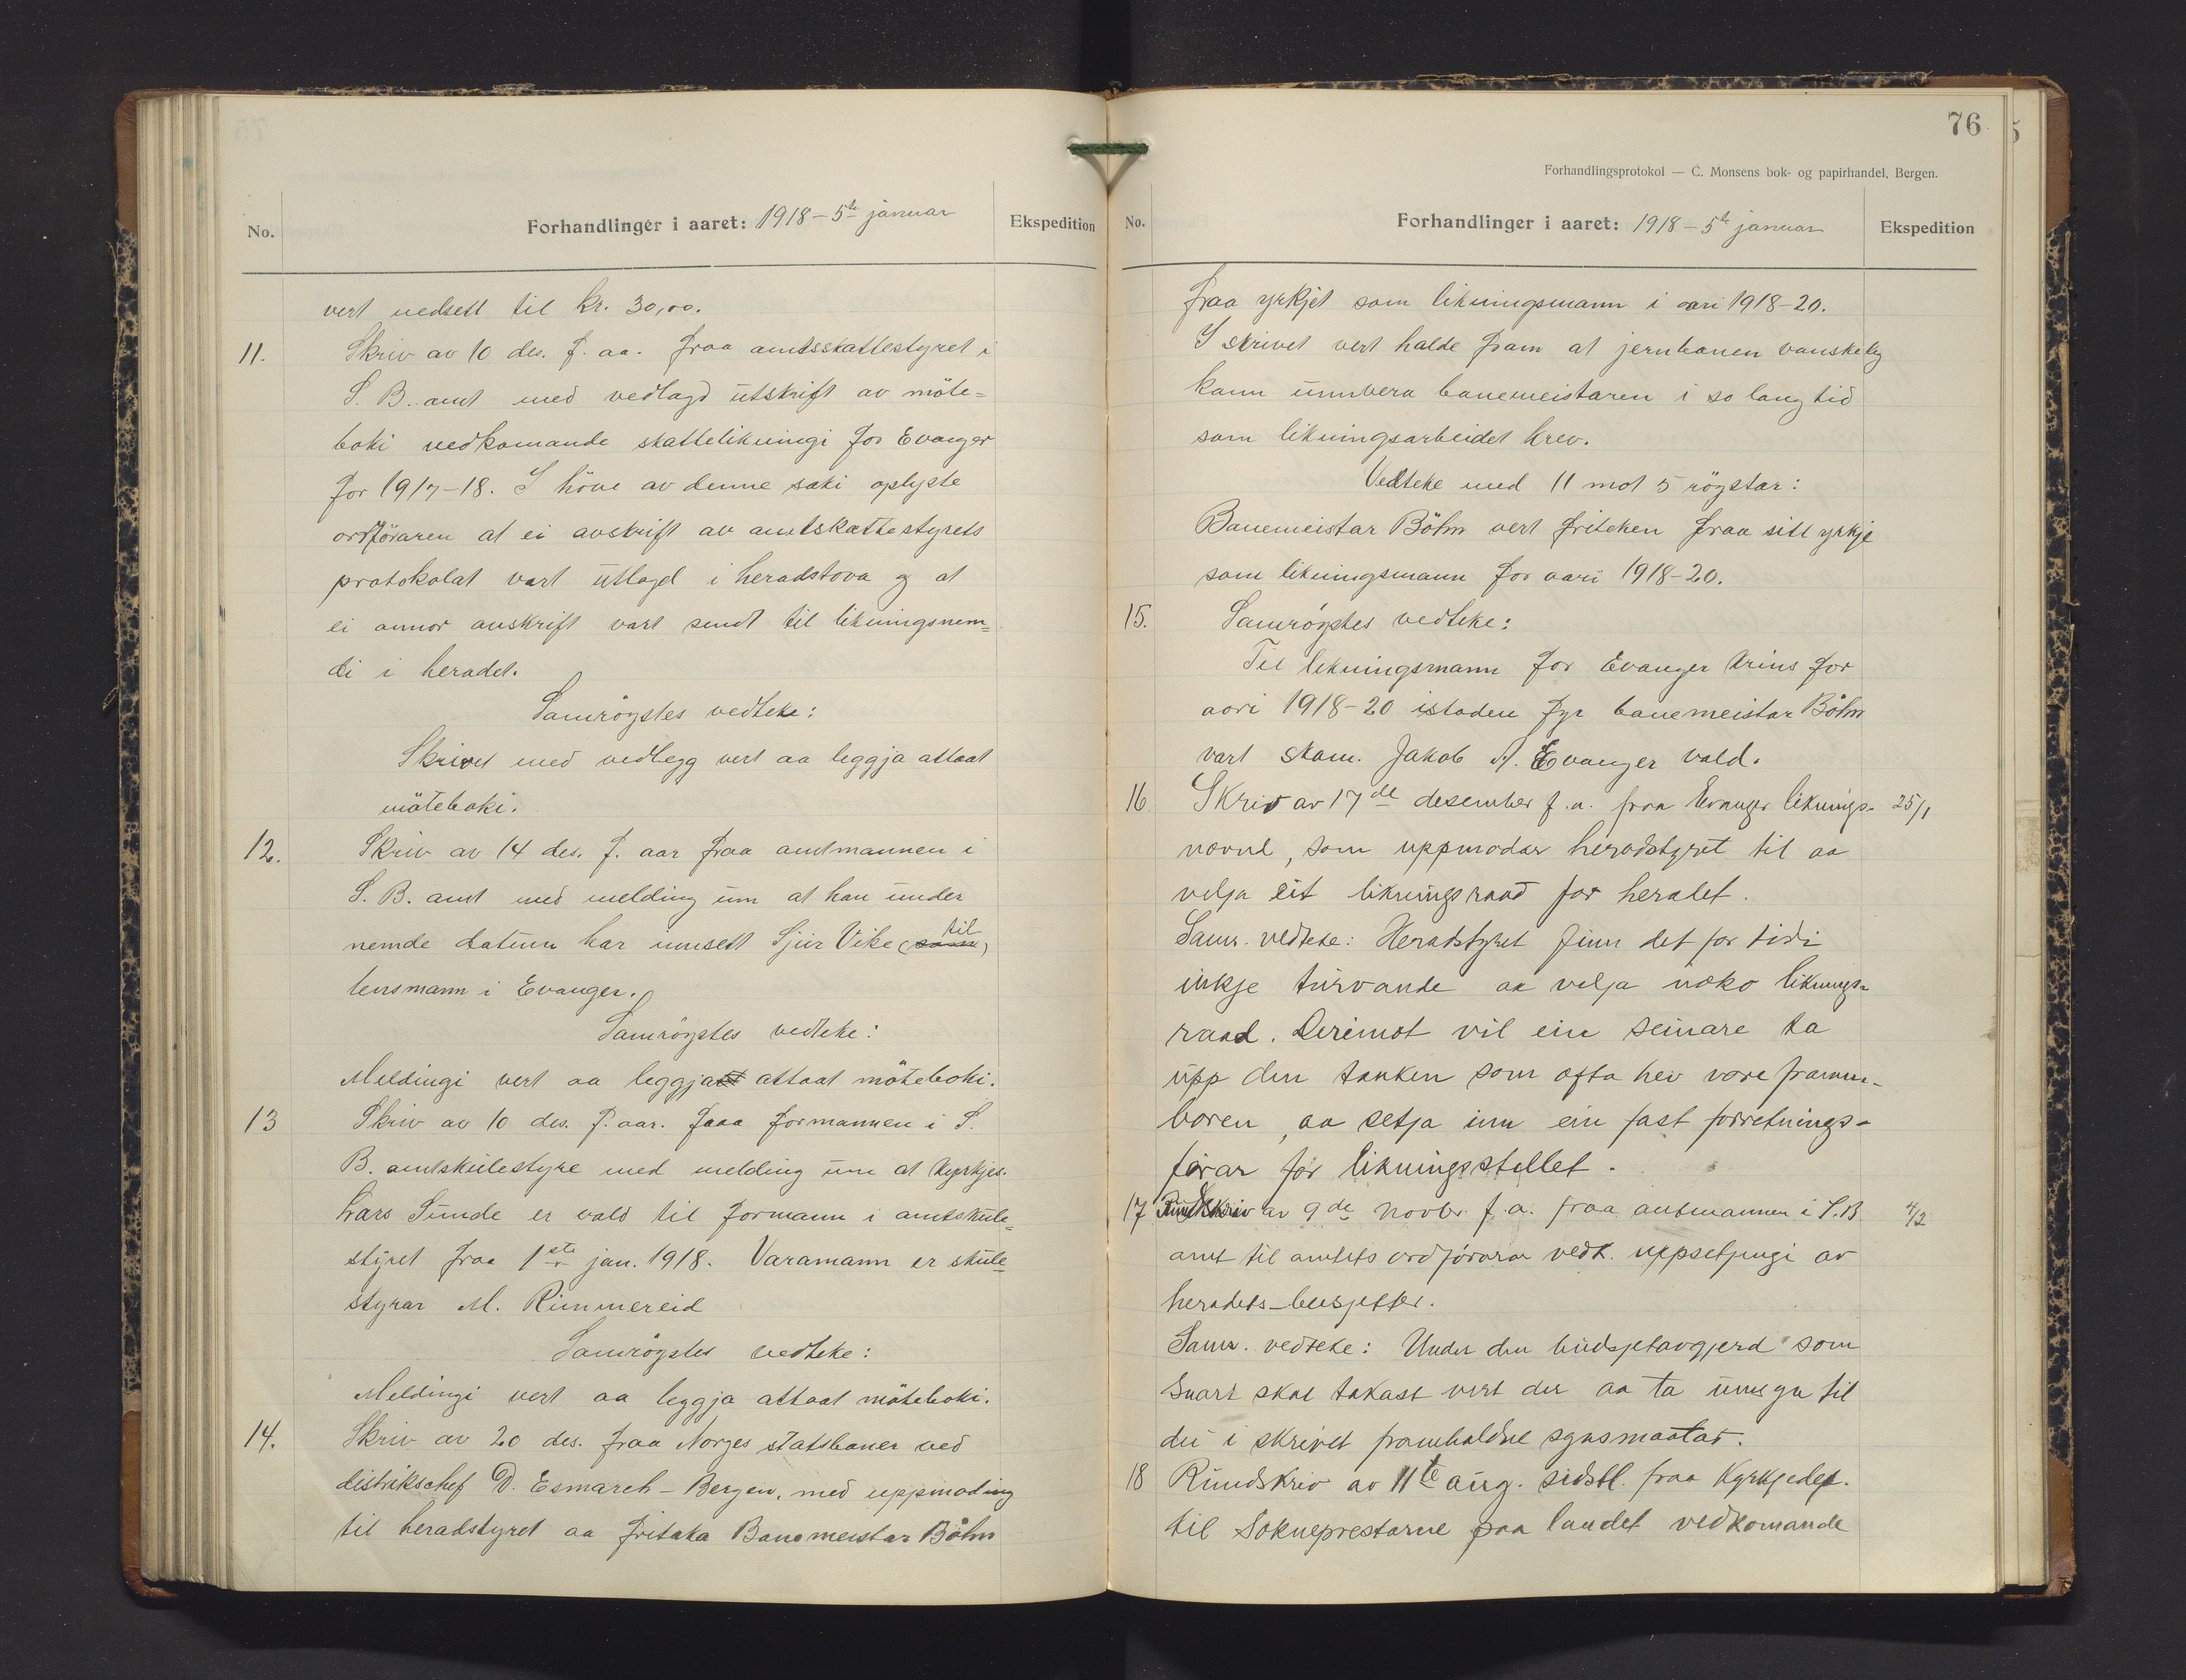 No.
Forhandlinger i aaret: 1918 – 5te januar
Ekspedition
vert nedsett til kr. 30,00.
11. Skriv av 10 des. f. aa. fraa amtsskattestyret i
S. B. amt med vedlagd utskrift av möte=
boki vedkomande skattelikningi for Evanger
for 1917-18. I höve av denne saki oplyste
ordföraren at ei avskrift av amtskattestyrets
protokolat vart utlagd i heradstova og at
ei annor avskrift vart sendt til likningsnem=
di i heradet.
Samrögstes vedteke:
Skrivet med vedlegg vert aa leggja attaat
möteboki.
12. Skriv av 14 des. f. aar fraa amtmannen i
S. B. amt med melding um at han under
nemde datum har innsett Sjur Vike (som) til
lensmann i Evanger.
Samrögstes vedteke:
Meldingi vert aa leggja attaat möteboki.
13 Skriv av 10 des. f. aar. fraa formannen i S.
B. amtskulestyre med melding um at Kyrkjes.
Lars Sunde er vald til formann i amtskule=
styret fraa 1ste jan. 1918. Varamann er skule=
styrar M. Rimmereid
Samrögstes vedteke:
Meldingi vert aa leggja attaat möteboki.
14. Skriv av 20 des. fraa Norges statsbaner ved
distrikschef D. Esmarch – Bergen, med uppmoding
til heradstyret aa fritaka Banemeistar Böhm
76
Forhandlingsprotokol — C. Monsens bok- og papirhandel, Bergen.
No.
Forhandlinger i aaret: 1918 – 5te januar
Ekspedition
fraa yrkjet som likningsmann i aari 1918-20.
I skrivet vert halde fram at jernbanen vanskeleg
kann unnvera banemeistaren i so lang tid
som likningsarbeidet krev.
Vedteke med 11 mot 5 rögstar:
Banemeistar Böhm vert friteken fraa sitt yrkje
som likningsmann for aari 1918-20.
15. Samrögstes vedteke:
Til likningsmann for Evanger krins for
aari 1918-20 istaden fyr banemeistar Böhm
vart skom. Jakob A. Evanger vald.
16. Skriv av 17de desember f.a. fraa Evanger liknings- 25/1
nævnd, som uppmodar heradstyret til aa
velja eit likningsraad for heradet.
Samr. vedteke: Heradstyret finn det for tidi
inkje turvande aa velja noko liknings=
raad. Derimot vil ein seinare ta
upp den tanken som ofta hev vore framm-
boren, aa setja inn ein fast forretnings-
förar för likningsstellet.
17 Rundskriv av 9de novbr. f.a. fraa amtmannen i S.B. 4/2
amt til amtets ordförarar vedk. uppsetjingi av
heradets-budsjetter.
Samr. vedteke: Under den budsjetavgjerd som
snart skal takast vert der aa ta umsyn til
dei i skrivet framhaldne synsmaatar.
18 Rundskriv av 11te aug. sidstl. fraa Kyrkjedep.
til Sokneprestarne paa landet vedkomande